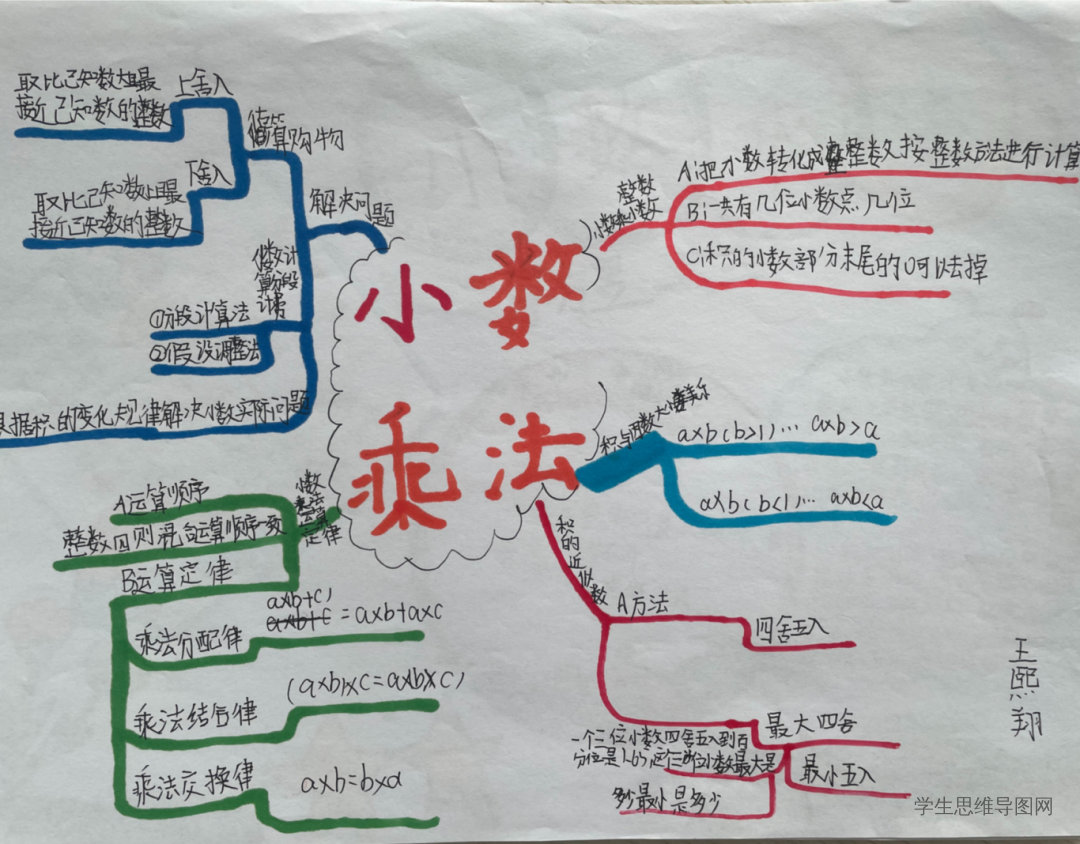 小数
乘法
解决问题
估算购物
上舍入
取比已知数大且最
接近已知数的整数
下舍入
取比已知数小且最
接近已知数的整数
算分段
计费
①分段计算法
②假设调整法
根据积的变化规律解决小数实际问题
整数
小数乘小数
A:把小数转化成整整数按整数方法进行计算
B:一共有几位小数点几位
C:积的小数部分末尾的0可以去掉
积与因数大小
a×b(b>1)… a×b>a
a×b(b<1)… a×b<a
积的近似数
A方法
四舍五入
最大四舍
最小五入
一个三位小数四舍五入到百
分位是1.65,这个三位小数最大是
多少最小是多少
小数
乘法
运算
定律
A运算顺序
整数四则混合运算顺序一致
B运算定律
乘法分配律
a×(b+c)
a×b+c = a×b+a×c
乘法结合律
(a×b)×c=a×(b×c)
乘法交换律
a×b=b×a
王熙翔
学生思维导图网